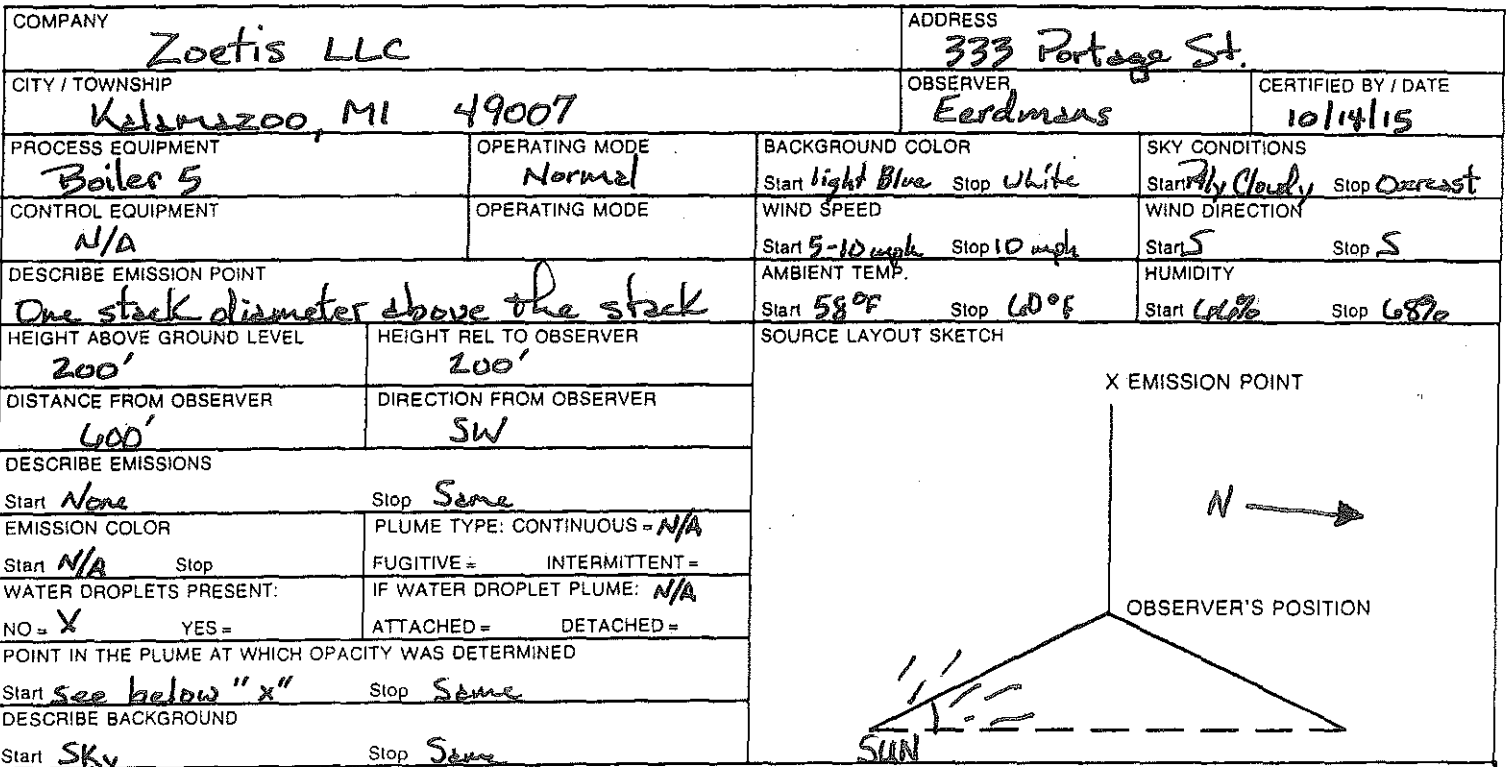 COMPANY
Zoetis LLC
ADDRESS
333 Portage St.
CITY / TOWNSHIP
Kalamazoo, MI 49007
OBSERVER
Eerdmans
CERTIFIED BY / DATE
10/14/15
PROCESS EQUIPMENT
Boiler 5
OPERATING MODE
Normal
BACKGROUND COLOR
Start light Blue Stop White
SKY CONDITIONS
Start Ptly Cloudy Stop Overcast
CONTROL EQUIPMENT
N/A
OPERATING MODE
WIND SPEED
Start 5-10 mph Stop 10 mph
WIND DIRECTION
Start S Stop S
DESCRIBE EMISSION POINT
One stack diameter above the stack
AMBIENT TEMP.
Start 58°F Stop 60°F
HUMIDITY
Start 66% Stop 68%
HEIGHT ABOVE GROUND LEVEL
200'
HEIGHT REL TO OBSERVER
200'
SOURCE LAYOUT SKETCH
X EMISSION POINT
DISTANCE FROM OBSERVER
600'
DIRECTION FROM OBSERVER
SW
DESCRIBE EMISSIONS
Start None Stop Same
N
EMISSION COLOR
Start N/A Stop
PLUME TYPE: CONTINUOUS = N/A
FUGITIVE = INTERMITTENT =
WATER DROPLETS PRESENT:
NO = X YES =
IF WATER DROPLET PLUME: N/A
ATTACHED = DETACHED =
OBSERVER'S POSITION
POINT IN THE PLUME AT WHICH OPACITY WAS DETERMINED
Start See below "x" Stop Same
DESCRIBE BACKGROUND
Start Sky Stop Same
SUN